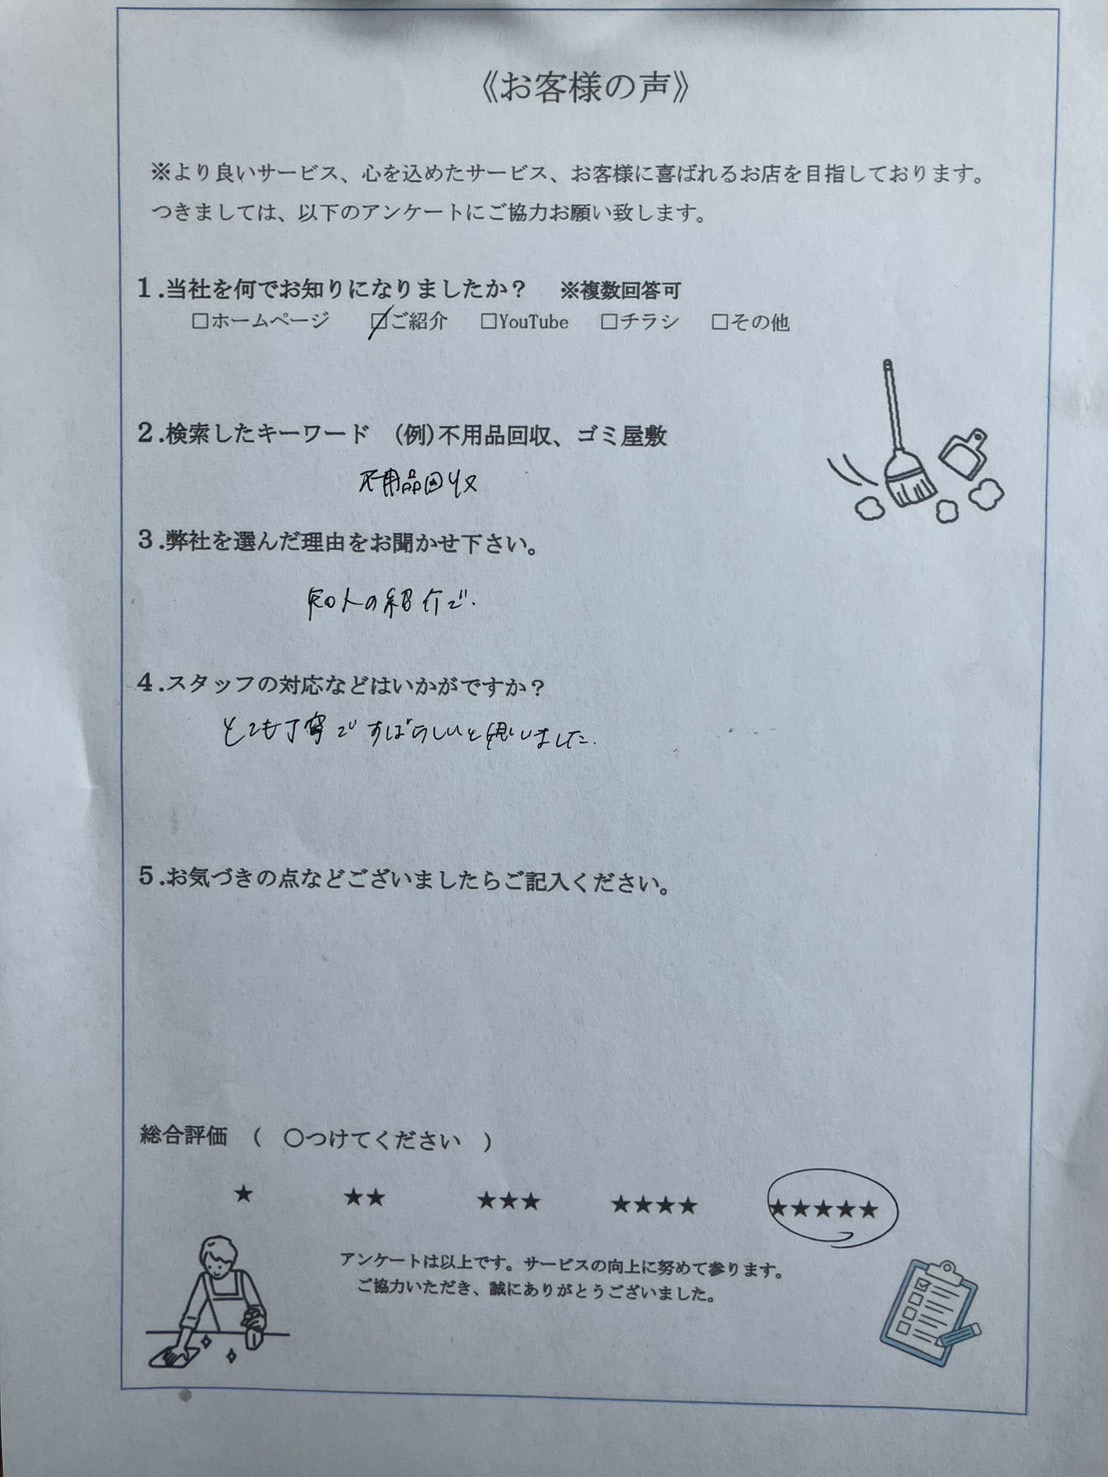 《お客様の声》
※より良いサービス、心を込めたサービス、お客様に喜ばれるお店を目指しております。
つきましては、以下のアンケートにご協力お願い致します。
1.当社を何でお知りになりましたか？　※複数回答可
□ホームページ　□ご紹介　□YouTube　□チラシ　□その他
2.検索したキーワード　(例)不用品回収、ゴミ屋敷
不用品回収
3.弊社を選んだ理由をお聞かせ下さい。
知人の紹介で.
4.スタッフの対応などはいかがですか？
とても丁寧ですばらしいと思いました.
5.お気づきの点などございましたらご記入ください。
総合評価　(　○つけてください　)
★　★★　★★★　★★★★　★★★★★
アンケートは以上です。サービスの向上に努めて参ります。
ご協力いただき、誠にありがとうございました。